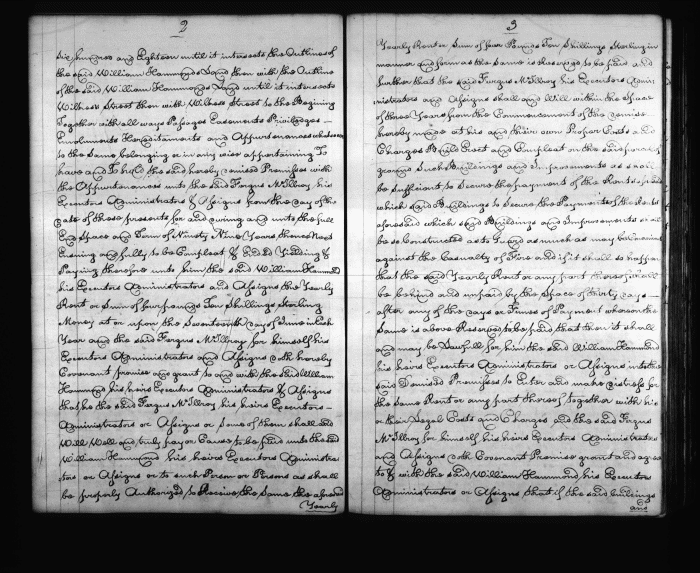 2
Six hundred and Eighteen until it intersects the Outlines of
the said William Hammonds Land then with the Outline
of the said William Hammonds Land until it intersects
Wilkes Street then with Wilkes Street to the Begining
Together with all ways Passages Easements Priviledges
Emoluments Hereditaments and Appurtenances whatsoever
to the Same belonging or in any wise appertaining To
have and To hold the said hereby demised Premises with
the Appurtenances unto the said Fergus McIlroy his
Executors Administrators & Assigns from the day of the
date of these presents for and during and unto the full
End Space and Term of Ninety Nine Years thence Next
Ensuing and fully to be Compleat & Ended Yielding &
Paying therefore unto him the said William Hammond
his Executors Administrators and Assigns the Yearly
Rent or Sum of four pounds Ten Shillings Sterling
Money at or upon the Seventeenth day of June in Each
Year and the said Fergus McIlroy for himself his
Executors Administrators and Assigns doth hereby
Covenant promise and grant to and with the said William
Hammond his heirs Executors Administrators & Assigns
that he the said Fergus McIlroy his heirs Executors
Administrators or Assigns or Some of them shall and
Will Well and truly pay or Cause to be paid unto the said
William Hammond his heirs Executors Administra
tors or Assigns or to such Person or Persons as shall
be properly Authorized to Receive the Same the aforesaid
Yearly
3
Yearly Rent or Sum of four Pounds Ten Shillings Sterling in
manner and form as the Same is Reserved to be paid and
further that the said Fergus McIlroy his Executors Admi
nistrators and Assigns shall and Will within the Space
of three Years from the Commencement of the demise
hereby made at his and their own Proper Costs and
Charges Build Erect and Compleat on the said parcel of
ground Such Buildings and Improvements as shall
be sufficient to Secure the payment of the Rents
which said Buildings to Secure the Payment of the Rents
aforesaid which said Buildings and Improvements shall
be so Constructed as to Guard as much as may be
against the Casualty of Fire and if it shall so happen
that the said Yearly Rent or any part thereof shall
be behind and unpaid by the Space of thirty days
after any of the days or Times of Payment whereon the
Same is above Reserved to be paid that then it shall
and may be Lawfull for him the said William Hammond
his heirs Executors Administrators or Assigns into the
said Demised Premises to Enter and make distress for
the Same Rent or any part thereof together with his
or their Legal Costs and Charges and the said Fergus
McIlroy for himself his heirs Executors Administrators
and Assigns doth Covenant Promise grant and agree
to & with the said William Hammond his Executors
Administrators or Assigns that if the said buildings
and